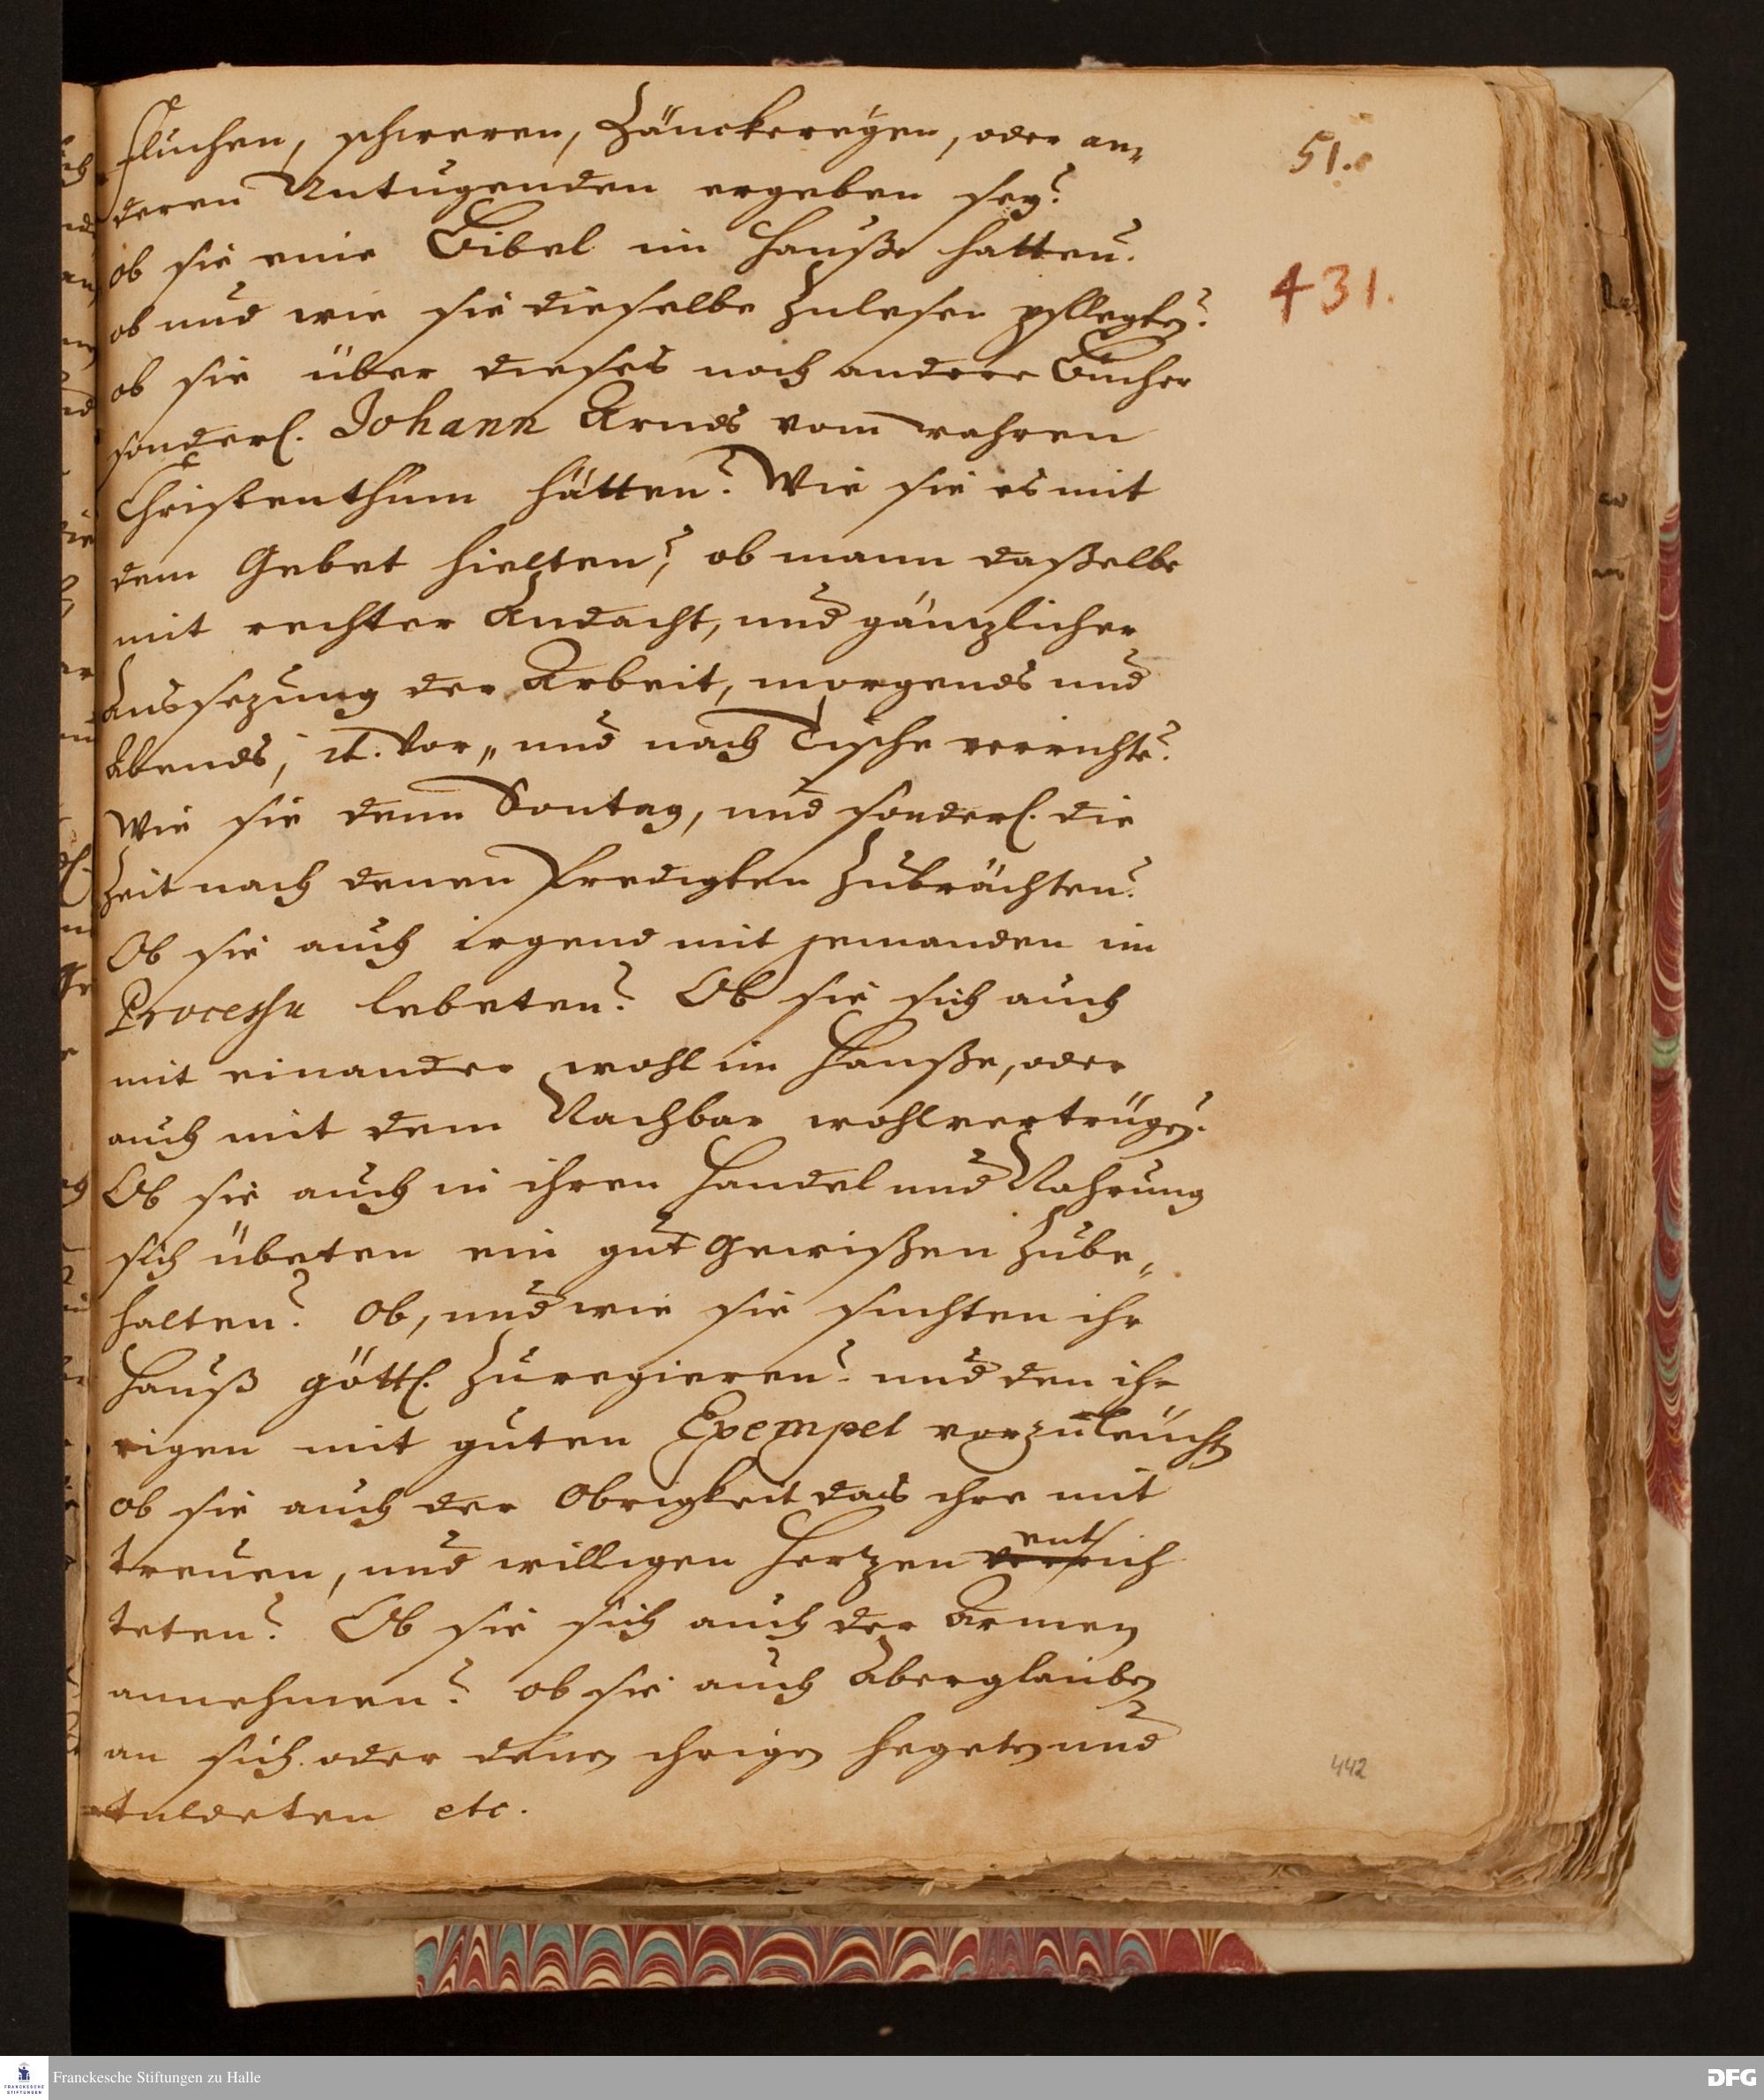 fluchen, schweren, Zänckereyen, oder an„
deren Untugenden ergeben sey?
ob sie eine Bibel im Hauße hatten?
ob und wie sie dieselbe zulesen pflegten?
ob sie über dieses noch andere Bücher
sonderl. Johann Arnds vom wahren
Christenthum hätten? Wie sie es mit
dem Gebet hielten? ob mann daßelbe
mit rechter Andacht, und gäntzlicher
Aussezung der Arbeit, morgends und
Abends, it. vor„ und nach Tische verrichte?
Wie sie denn Sontag, und sonderl. die
Zeit nach denen Predigten zubrächten?
Ob sie auch irgend mit jemanden im
Processu lebeten? Ob sie sich auch
mit einander wohl im Hauße, oder
auch mit dem Nachbar wohl vertrügen?
Ob sie auch in ihren Handel und Nahrung
sich übeten ein gut Gewißen zube„
halten? Ob, und wie sie suchten ihr
Hauß göttl. zuregieren? und den ih
rigen mit guten Exempel vorzuleüchten
ob sie auch der Obrigkeit das ihre mit
treuen, und willigen Hertzen entrich
teten? Ob sie sich auch der Armen
annehmen? ob sie auch Aberglauben
an sich oder denen ihrigen hegeten und
duldeten etc.
51.
431.
442
Franckesche Stiftungen zu Halle
FRANCKESCHE STIFTUNGEN
DFG